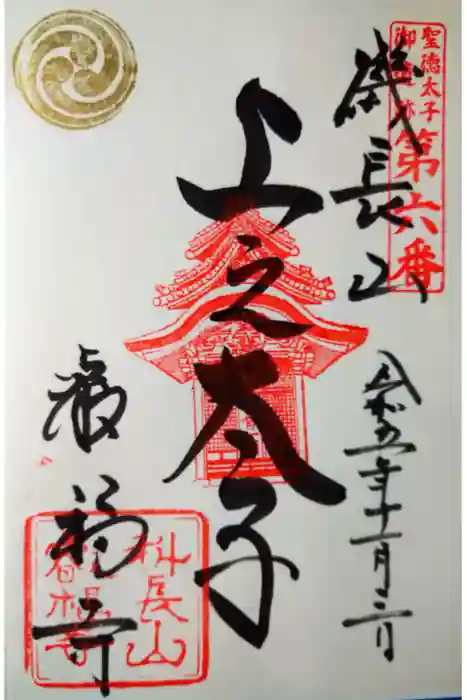 聖徳太子
御遺跡
第六番
磯長山
上之太子
叡福寺
令和五年十一月三日
科長山